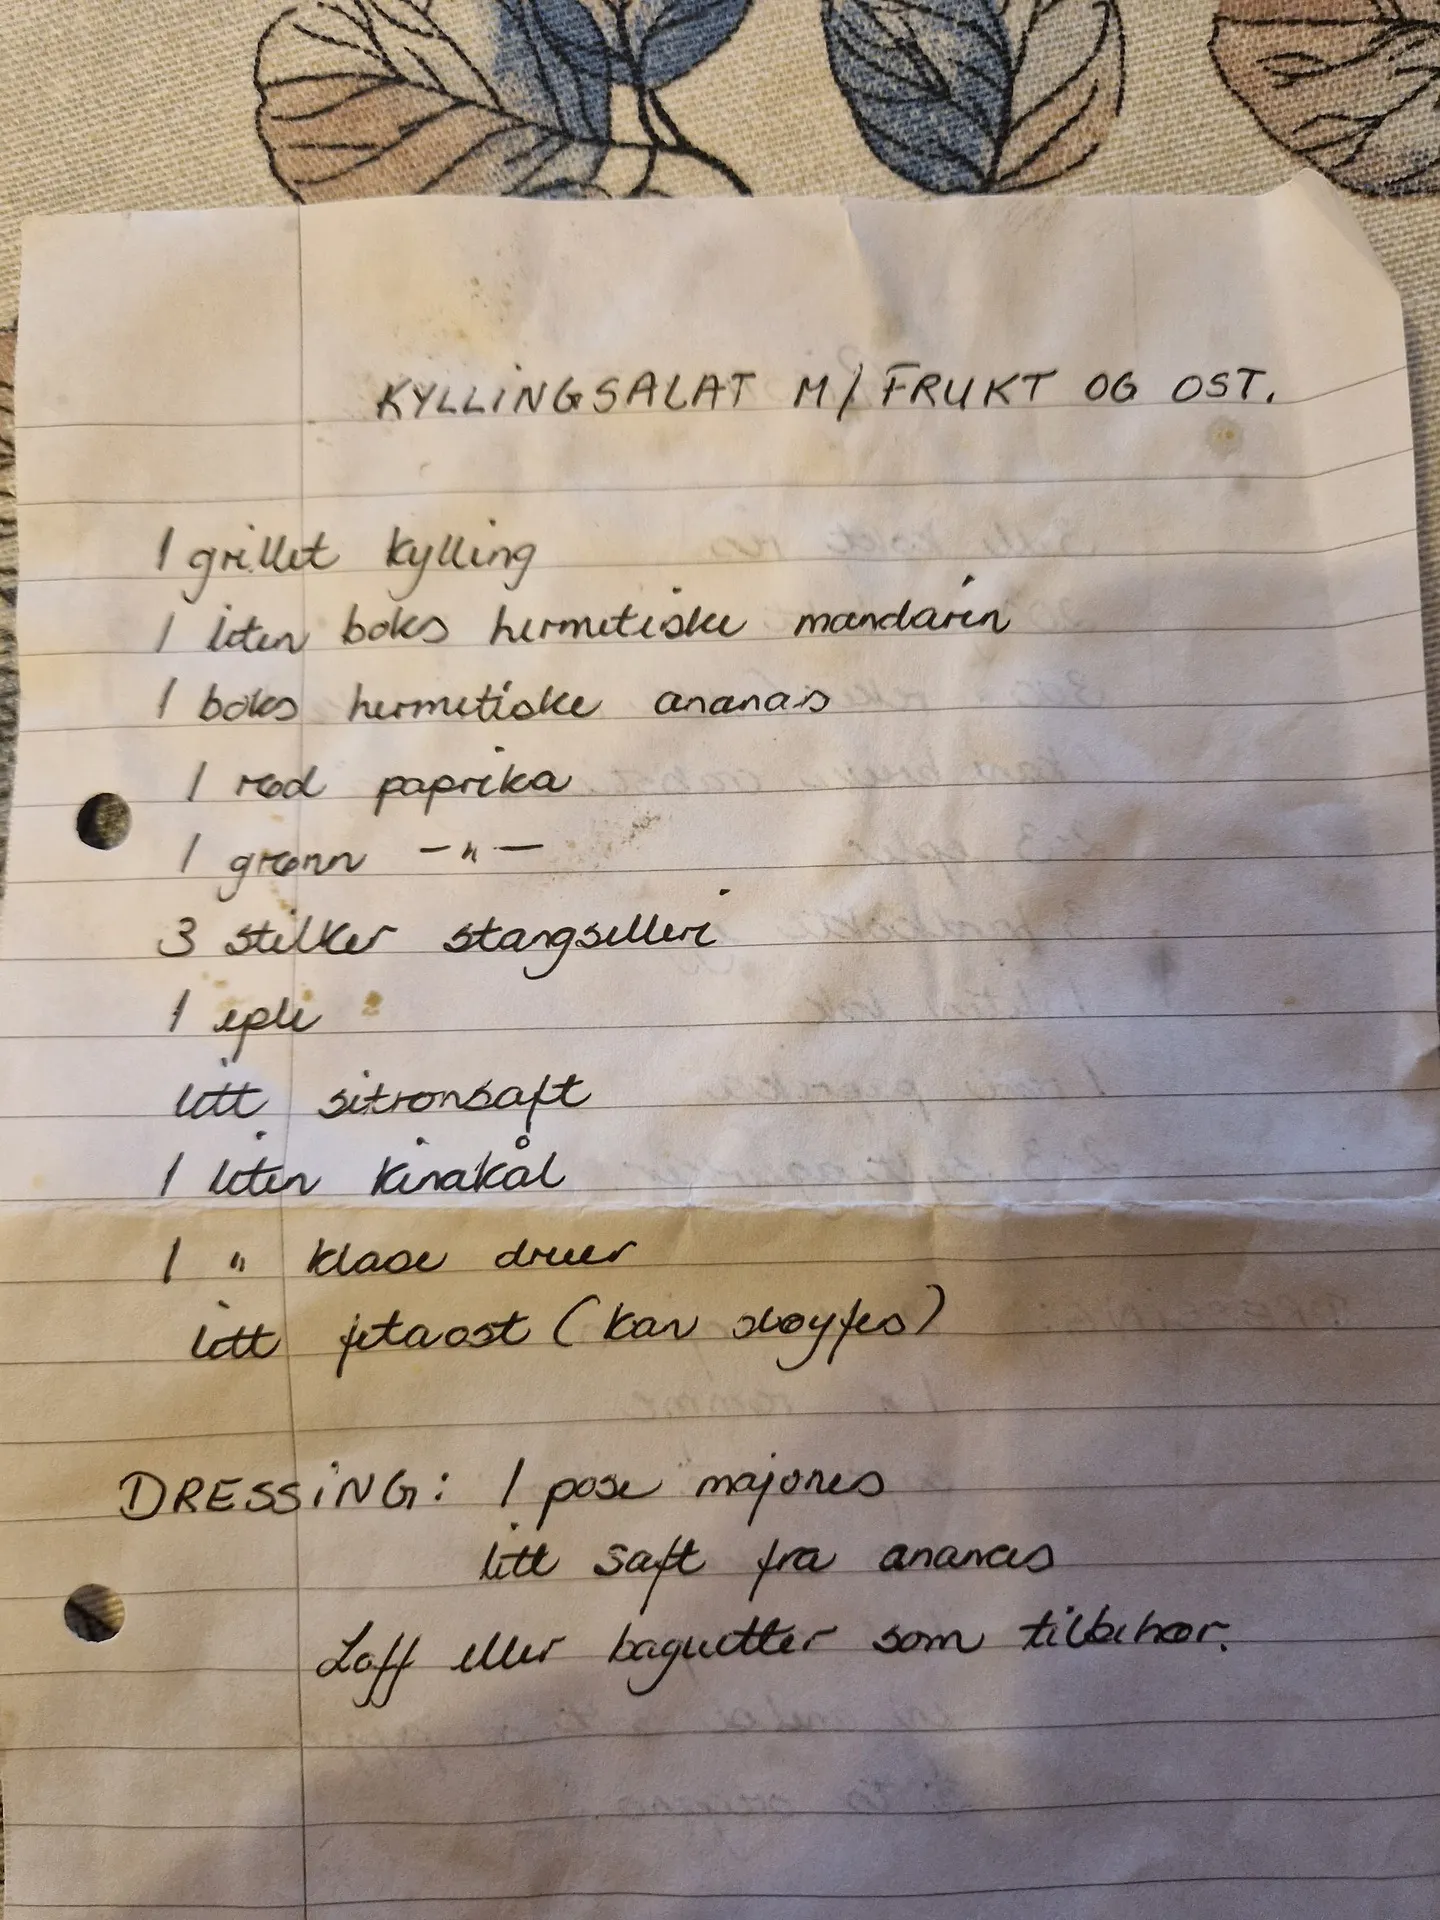 KYLLINGSALAT M/ FRUKT OG OST.
1 grillet kylling
1 liten boks hermetiske mandarin
1 boks hermetiske ananas
1 rød paprika
1 grønn —"—
3 stilker stangselleri
1 eple
litt sitronsaft
1 liten kinakål
1 " klase druer
litt fetaost (kan sløyfes)
DRESSING: 1 pose majones
litt saft fra ananas
Loff eller baguetter som tilbehør.